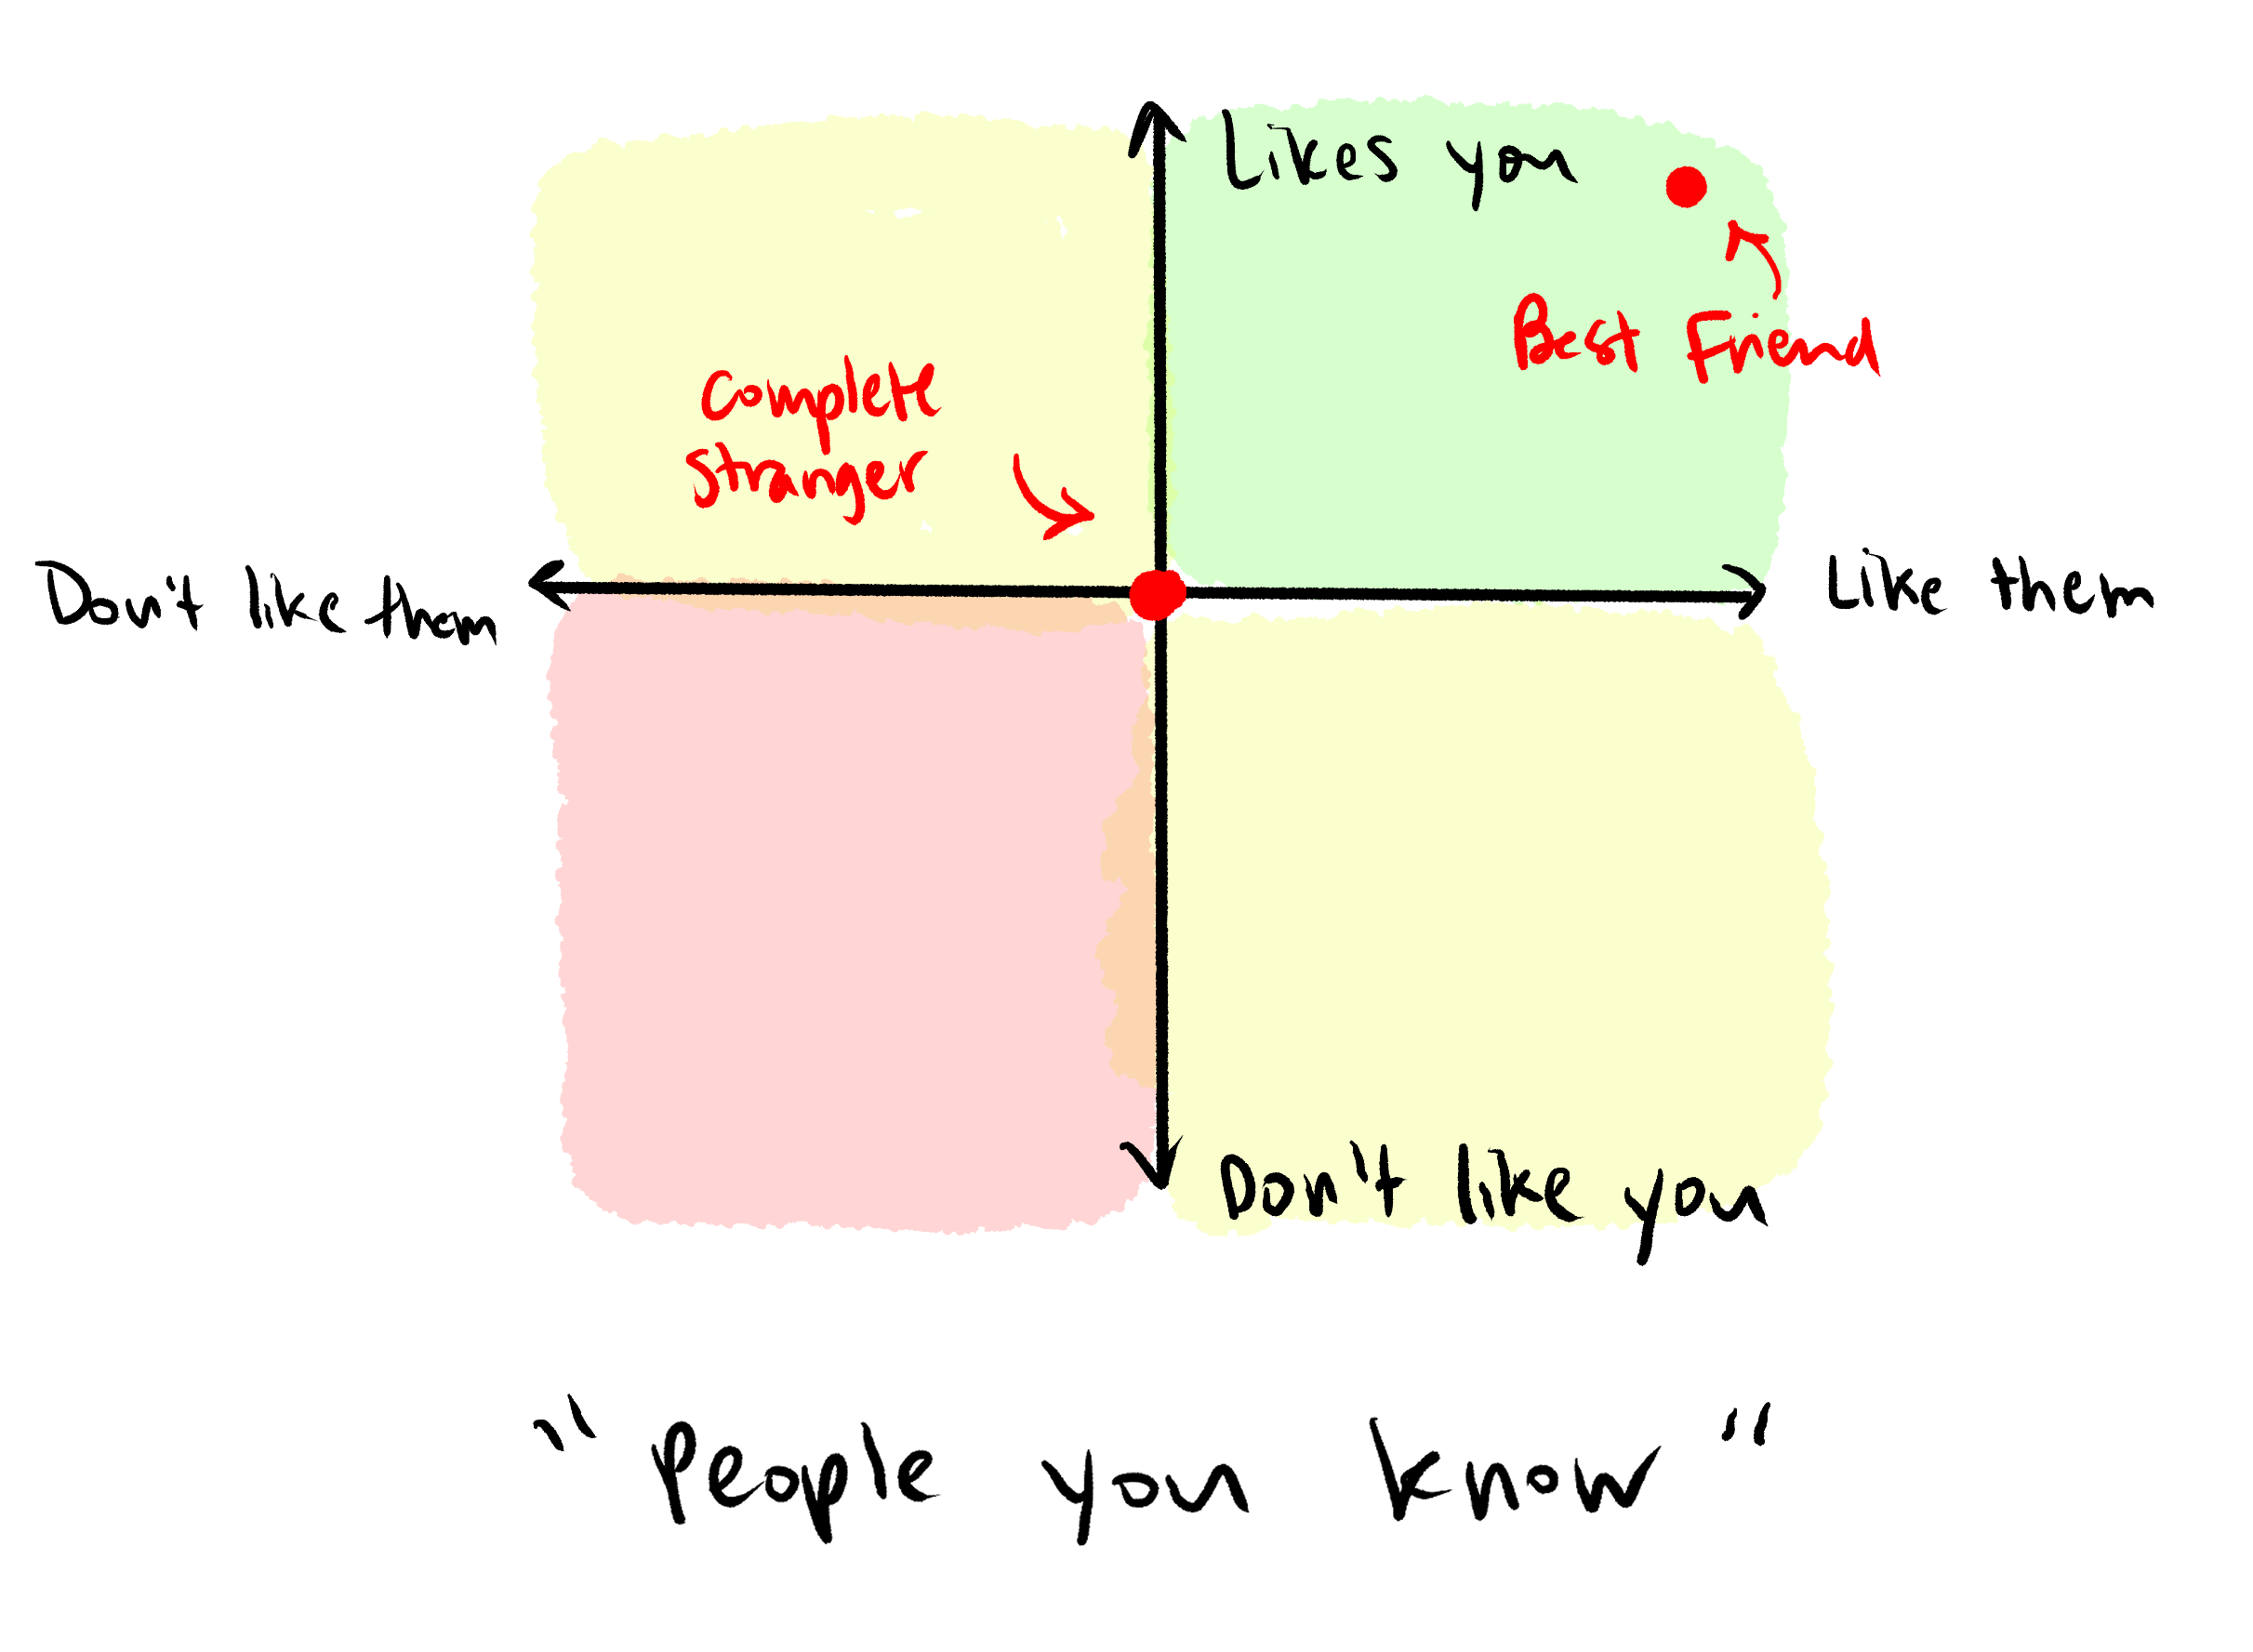 Likes you
Best Friend
Complete
stranger
Don't like them
Like them
Don't like you
"People you know"